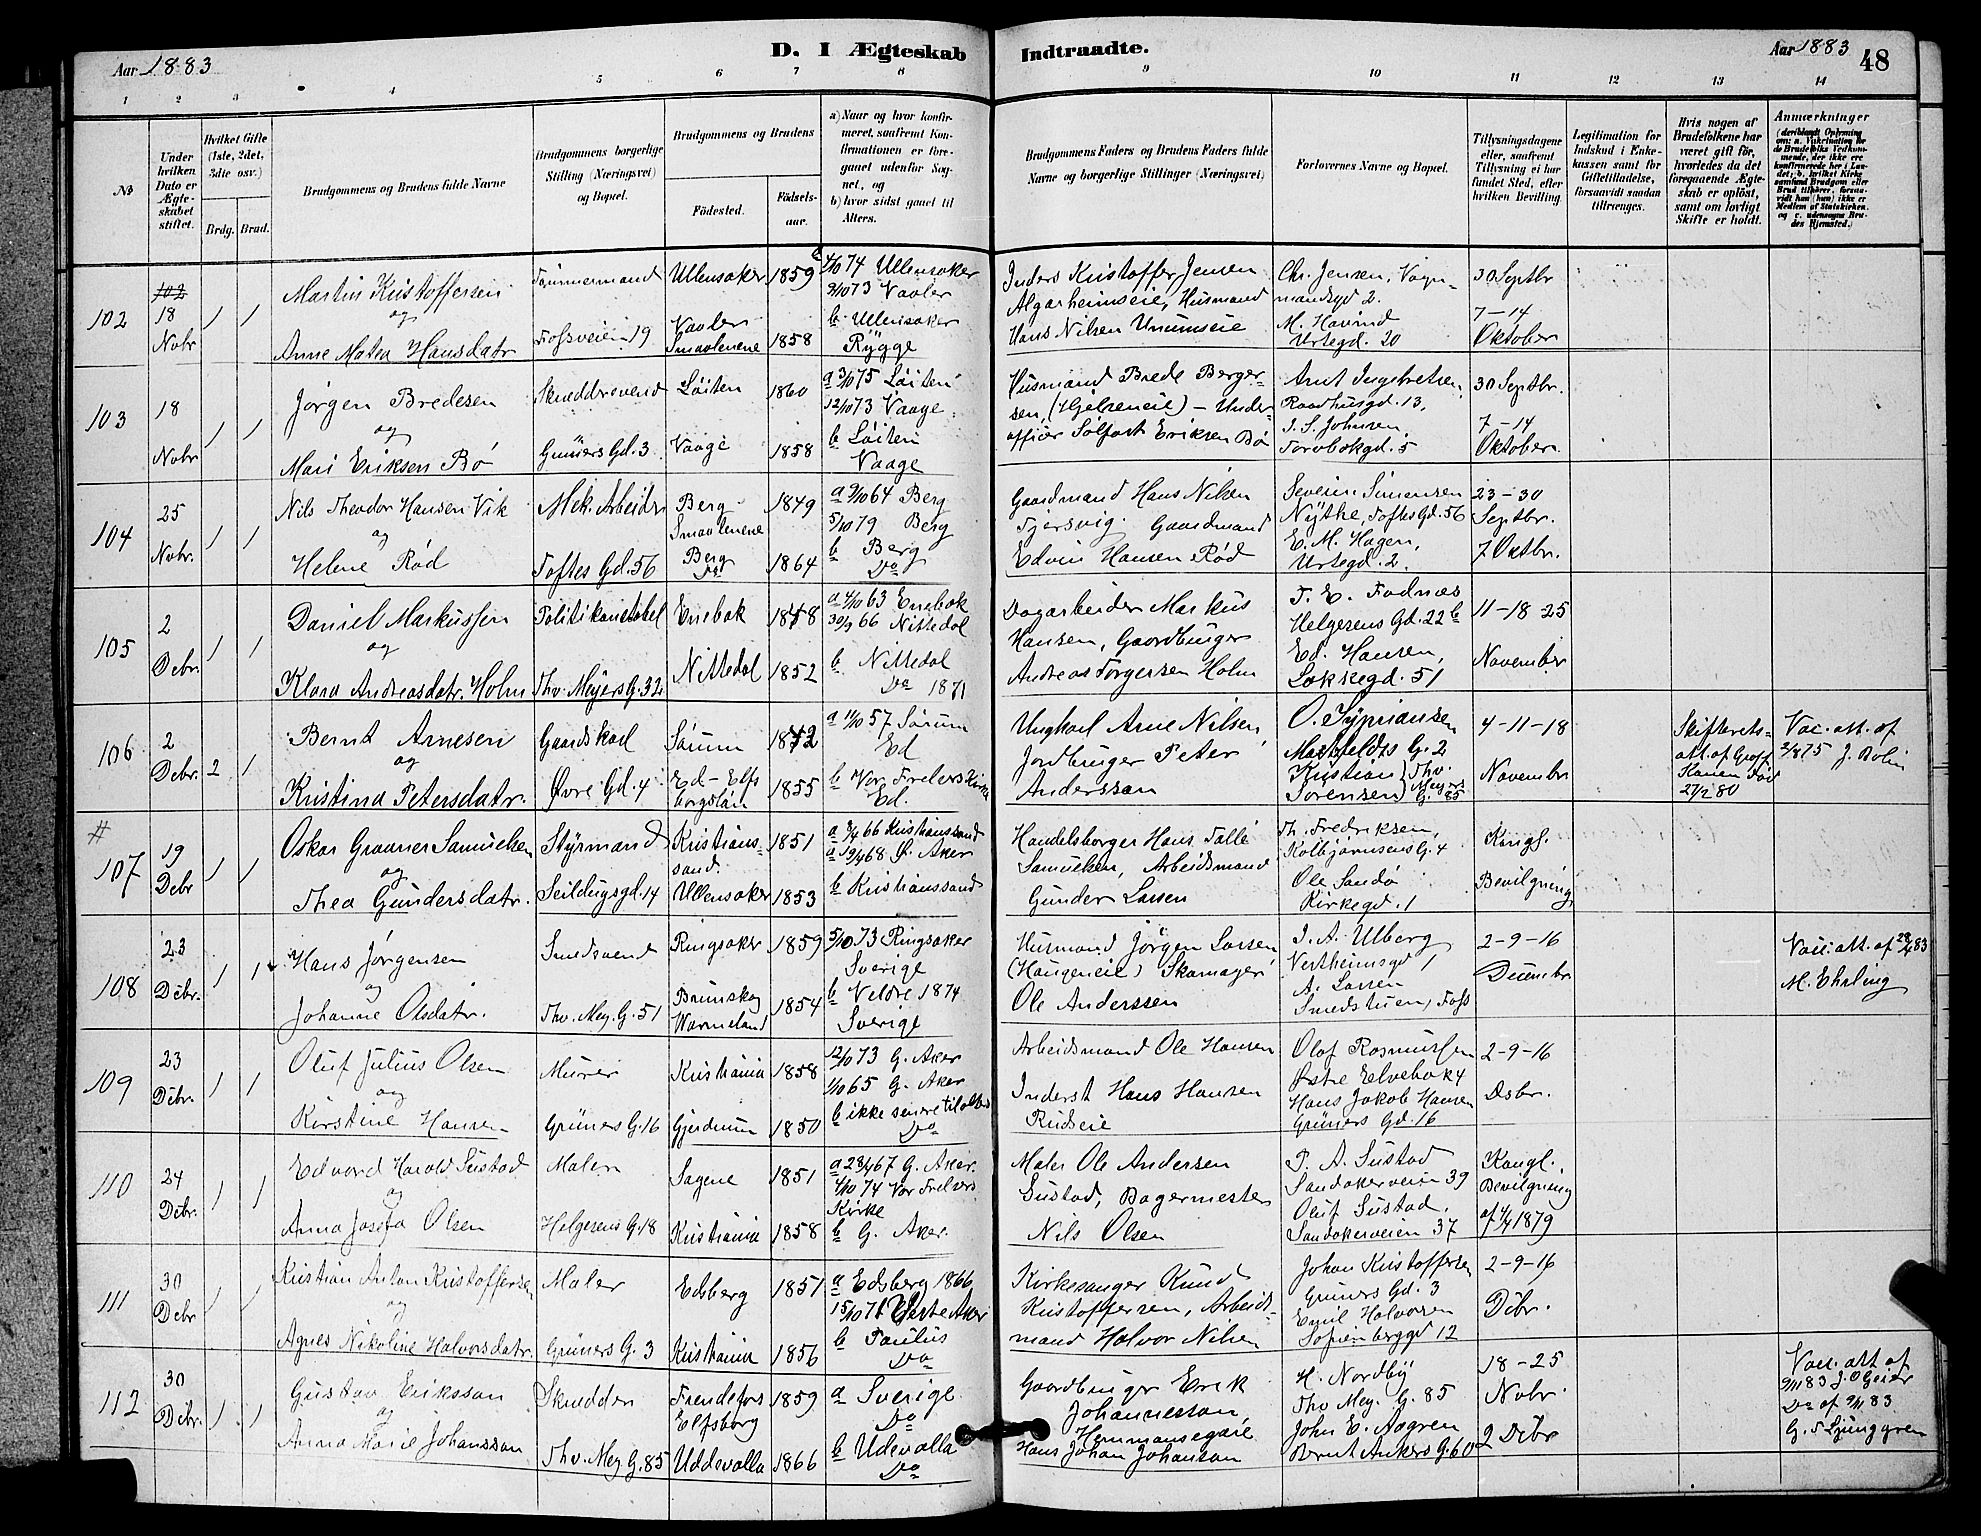 Aar 1883
D. I Ægteskab Indtraadte.
Aar 1883
48
1 2 3 4 5 6 7 8 9 10 11 12 13 14
№
Under hvilken Dato er Ægteskabet stiftet.
Hvilket Gifte (1ste, 2det, 3die osv.)
Brdg. Brud.
Brudgommens og Brudens fulde Navne
Brudgommens borgerlige Stilling (Næringsvei) og Bopæl.
Brudgommens og Brudens
Fødested.
Fødselsaar.
a) Naar og hvor konfirmeret, saafremt Konfirmationen er foregaaet udenfor Sognet, og
b) hvor sidst gaaet til Alters.
Brudgommens Faders og Brudens Faders fulde Navne og borgerlige Stillinger (Næringsvei)
Forlovernes Navne og Bopæl.
Tillysningsdagene eller, saafremt Tillysning ei har fundet Sted, efter hvilken Bevilling.
Legitimation for Indskud i Enkekassen samt for Giftetilladelse, forsaavidt saadan tiltrænges.
Hvis nogen af Brudefolkene har været gift før, hvorledes da det foregaaende Ægteskab er opløst, samt om lovligt Skifte er holdt.
Anmærkninger
102
18 Nobr
1 1
Martin Kristoffersen
og
Anne Matea Hansdatr
Tømmermand
Fossveien 19
Ullensaker 1859
Vaaler Smaalenene 1858
4/10 74 Ullensaker
9/10 73 Vaaler
b Ullensaker
Rygge
Inders Kristoffer Jensen
Algarheimseie, Husmand
Hans Nilsen Ununseie
Chr. Jensen, Vognmandsgd 2.
M. Havind
Urtegd. 20
30 Septbr
7-14
Oktober
103
18 Nobr
1 1
Jörgen Bredesen
og
Mari Eriksen Bö
Skræddersvend
Grüners Gd. 3
Løiten 1860
Vaage 1858
a 3/10 75 Løiten
12/10 73 Vaage
b Løiten
Vaage
Husmand Brede Bergersen, (Hjelseneie) - Underofficer Solfast Eriksen Bö
Arnt Ingebretsen,
Raadhusgd. 13,
J. S. Johnsen,
Torvbakgd. 5
30 Septbr.
7-14
Oktober
104
25 Nobr.
1 1
Nils Theodor Hansen Vik
og
Helene Rød
Mek. Arbeider
Toftes Gd. 56
Berg Smaalenene 1849
Berg Do 1864
a 9/10 64 Berg
5/10 79 Berg
b Berg
Do
Gaardmand Hans Nilsen
Tjersvig. Gaardmand
Edvin Hansen Rød
Severin Simensen
Nythe, Toftes Gd. 56
E. M. Hagen,
Urtegd. 2.
23-30
Septbr.
7 Oktbr.
105
2 Debr.
1 1
Daniel Markussen
og
Klara Andreasdatr. Holm
Politikonstabel
Thv. Meyers G. 32
Enebak 1848
Nittedal 1852
a 4/10 63 Enebak
30/9 66 Nittedal
b Nittedal
Do 1871
Dagarbeider Markus
Hansen, Gaardbruger
Andreas Torgersen Holm
T. E. Fodnæs
Helgesens Gd. 22 b
Ed. Hansen,
Løkkegd. 51
11-18 25
November
106
2 Debr.
2 1
Bernt Arnesen
og
Kristina Petersdatr.
Gaardskarl
Øvre Gd. 4
Sørum 1842
Ed - Elfsborgslän 1855
a 11/10 57 Sørum
Ed
b Vor Frelsers Kirke
Ed.
Ungkarl Arne Nilsen,
Jordbruger Peter
Anderssan
O. Syprianssen
Markveids G. 2
Kristian Sørensen Thv. Meyers G. 25
4-11-18
Novembr
Skifterets-
att. af
27/2 80
Vac. att. af
2/8 75 J. Bolin
# 107
19 Debr
1 1
Oskar Graaner Samuelsen
og
Thea Gundersdatr.
Styrmand
Seildugsgd. 14
Kristianssand. 1851
Ullensaker 1853
a 8/4 66 Kristianssand
a 19/4 68 Ø. Aker
b Kristianssand
Handelsborger Hans Falle
Samuelsen, Arbeidsmand
Gunder Larsen
Th. Fredriksen,
Kolbjørnsens G. 4
Ole Sandø
Kirkegd. 1
Kongl.
Bevilgning
108
23 Debr.
1 1
Hans Jörgensen
og
Johanne Olsdatr.
Smedsvend
Thv. Mey. G. 51
Ringsaker 1859
Brunskog Wärmeland 1854
5/10 73 Ringsaker
Sverige
b Veldre 1874
Sverige
Husmand Jörgen Larsen
(Haugeneie) Skomager
Ole Anderssen
J. A. Ulberg
Vertheimsgd 1
A. Larsen
Smedstuen, Foss
2-9-16
Decembr
Vac. att. af 28/4 83
M. Ehrling
109
23 Debr.
1 1
Oluf Julius Olsen
og
Kirstine Hansen
Murer
Grüners G. 16
Kristiania 1858
Gjerdrum 1850
12/10 73 G. Aker
1/10 65 G. Aker
b ikke senere til alters
Do
Arbeidsmand Ole Hansen
Inderst Hans Hansen
Rudseie
Olaf Rasmussen
Østre Elvebak 4
Hans Jakob Hansen
Grüners Gd. 16
2-9-16
Dsbr.
110
24 Debr.
1 1
Edvard Harald Sustad
og
Anna Josefa Olsen
Maler
Helgesens G. 18
Sagene 1851
Kristiania 1858
a 23/4 67 G. Aker.
4/10 74 Vor Frelsers
Kirke
b G. Aker.
Maler Ole Andersen
Sustad, Bagermester
Nils Olsen
P. A. Sustad
Sandakerveien 39
Oluf Sustad,
Sandakerveien 37
Kongl.
Bevilgning
af 4/4 1879
111
30 Debr
1 1
Kristian Anton Kristoffersen
og
Agnes Nikoline Halvorsdatr.
Maler
Grüners G. 3
Edsberg 1851
Kristiania 1856
a Edsberg 1866
15/10 71 Vestre Aker
b Paulus
Do
Kirkesanger Knud
Kristoffersen, Arbeidsmand Halvor Nilsen
Johan Kristoffersen
Gruners Gd. 3
Emil Halvorsen
Sofienberggd 12
2-9-16
Debr.
112
30 Debr.
1 1
Gustav Eriksson
og
Anna Marie Johansson
Skrædder
Thv. Mey G. 85
Frendefors Elfsborg 1859
Uddevalla 1866
a Sverige
Do
b Udevalla
Do
Gaardbruger Erik
Johannesson,
Hemmansegare
Hans Johan Johansan
H. Nordby
Thv Mey. G. 85
John E. Aagren
Bernt Ankers G. 60
18-25
Nobr.
2 Debr
Vac. att af
9/11 83 J. O Geier
Do af 9/11 83
G. F Ljunggren